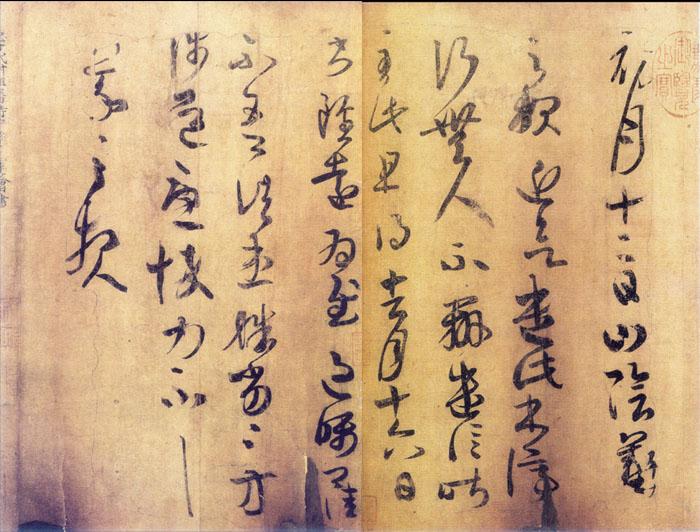 初月十二日山陰羲
之報近欲遣此書停
行無人不辦遣信昨
至此且得去月十六日
書雖遠為慰過囑卿佳
不吾諸患殊劣劣方
涉道憂悴力不具
羲之報